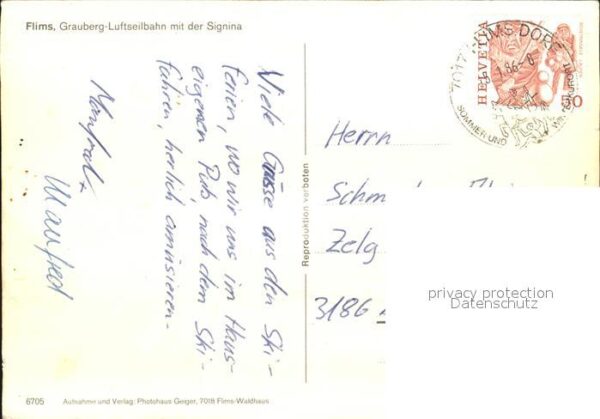 Flims, Grauberg-Luftseilbahn mit der Signina
Viele Grüsse aus den Ski-
ferien, wo wir uns im Haus-
eigenen Pub, nach dem Ski-
fahren, herlich amüsieren-
Manfred
Reproduktion verboten
HELVETIA
50
FLIMS DORF
SOMMER UND
Herrn
Zelg
3186
privacy protection
Datenschutz
6705 Aufnahme und Verlag: Photohaus Geiger, 7018 Flims-Waldhaus